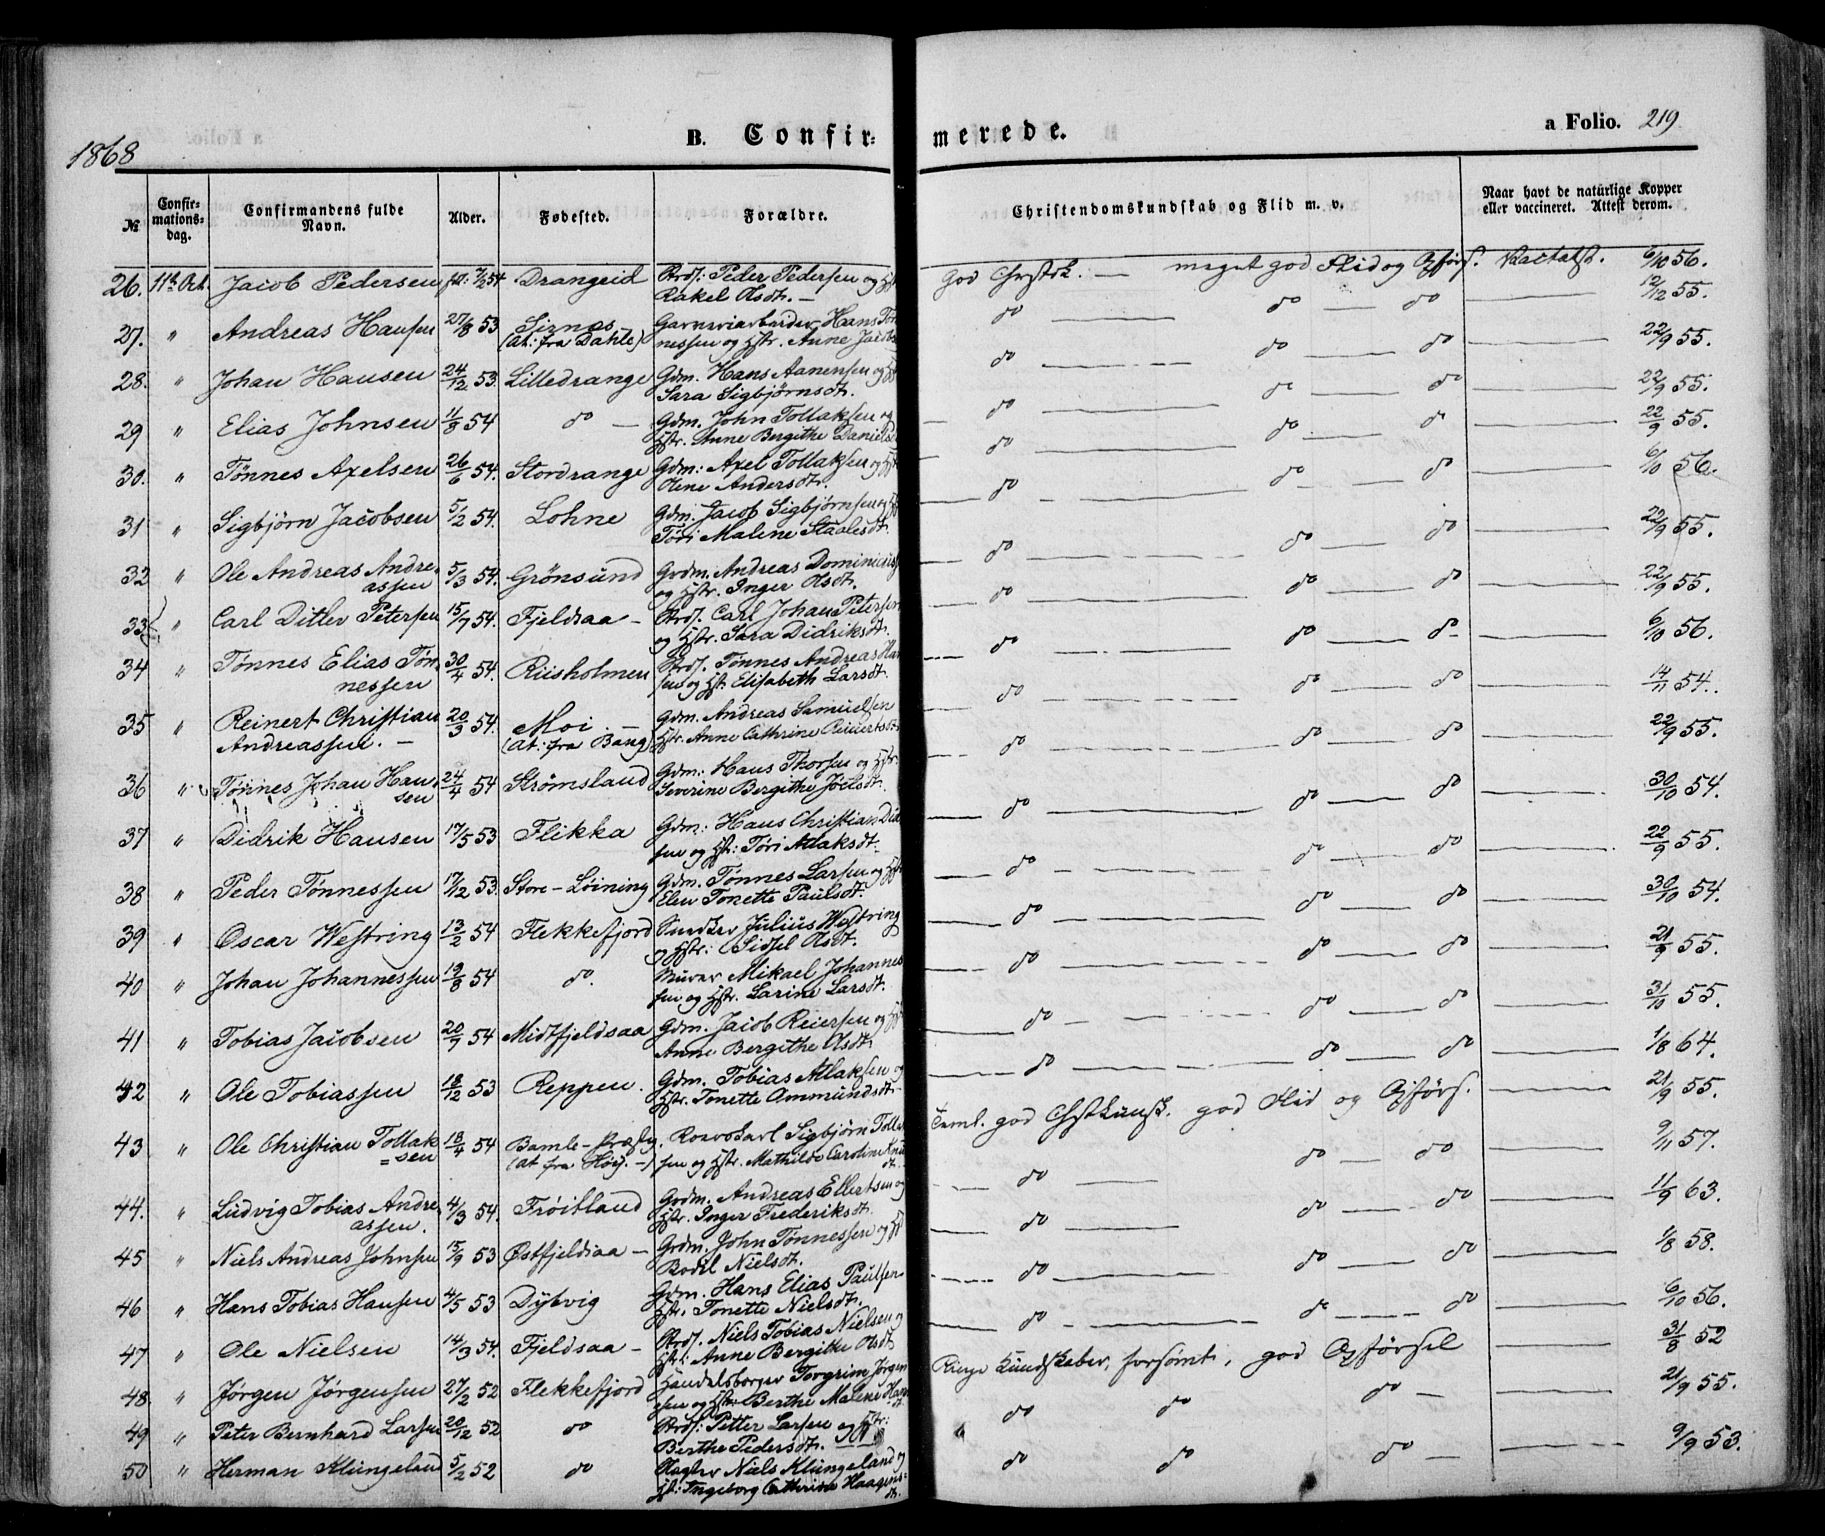 1868
B. Confir-
merede.
a Folio. 219.
No
Confir-
mations-
dag.
Confirmandens fulde
Navn.
Alder.
Fødested.
Forældre.
Christendomskundskab og Flid m. v.
Naar havt de naturlige Kopper
eller vaccineret. Attest derom.
26. 11te Oct. Jacob Pedersen 7/2 54 Drangeid Strds: Peder Pedersen og
Rakel Olsdt. —
God Chrstk. — meget god Flid og Opførs. 6/10 56.
27. " Andreas Hansen 27/8 53 Sirnes Garveriarbeider Hans Tøn
(at: fra Dahle) nessen og Hstr. Anne Jacobs
do do do 12/12 55.
28. " Johan Hansen 24/12 53. Lilledrange Gdm. Hans Aanensen og
Sara Sigbjørnsdt.
do do do 22/9 55.
29 " Elias Johnsen 11/8 54 do — Gdm. John Tollaksen og
Hstr. Anne Bergithe Daniels
do do do 22/9 55.
30. " Tønnes Axelsen 26/6 54. Stordrange Gdm: Axel Tollaksen og
Olene Andersdt.
do do do 22/9 55.
31 " Sigbjørn Jacobsen 5/2 54. Lohne Gdm. Jacob Sigbjørnsen og
Tøri Malene Staalesdt.
do do do 6/10 56.
32 " Ole Andreas Andre-
assen 5/3 54. Grønsund Grdm. Andreas Dominicus
og Hstr. Inger Olsdt.
do do do 22/9 55.
33 " Carl Ditlev Petersen 15/7 54. Fjeldsaa — Strds. Carl Johan Petersen
og Hstr. Sara Didriksdt.
do do do 22/9 55.
34 " Tønnes Elias Tøn-
nessen 30/4 54. Riisholmen Strds. Tønnes Andreas Han
sen og Hst. Elisabeth Larsdt.
do do do 6/10 56.
35 " Reinert Christian 20/3 54. Moi — Gdm. Andreas Samuelsen
Andreassen. — (at: fra Bang) Hstr. Anne Cathrine Reinerts
do do do 14/11 54.
36 " Tønnes Johan Han-
sen 24/4 54 Strømsland Gdm: Hans Thorsen og Hstr.
Severine Bergithe Joelsdt.
do do do 22/9 55.
37 " Didrik Hansen 17/5 53 Flikka Gdm: Hans Christian Did
sen og Hstr: Tøri Atlaksdt.
do do do 30/10 54.
38 " Peder Tønnessen 17/12 53. Store-Løining Gdm. Tønnes Larsen og
Elen Tonette Paulsdt.
do do do 22/9 55.
39 " Oscar Westring 13/2 54 Flekkefjord Snedker Julius Westring
og Hstr: Sidsel Olsdt.
do do do 30/10 54.
40 " Johan Johannessen 19/8 54 do. Murer Mikael Johannes
sen og Hstr. Larine Larsdt.
do do do 21/9 55.
41 " Tobias Jacobsen 20/7 54 Midtfjeldsaa Gdm. Jacob Reiersen og
Anne Bergithe Olsdt.
do do do 31/10 55.
42 " Ole Tobiassen 18/12 53 Reppen. Gdm. Tobias Atlaksen og
Hstr. Tonette Ommundsdt.
do do do 1/8 64.
43 " Ole Christian Tollak-
sen 18/4 54 Bamle-Præstg. Roerskarl Sigbjørn Tolla
sen og Hstr. Mathilde Caroline Knu
Teml. god Chstkunsk. god Flid og Opførs. 21/9 55.
44. " Ludvig Tobias Andre-
assen. 4/3 54. Frøitland Grdm. Andreas Ellertsen og
Hstr. Inger Frederiksdt.
do do do 9/11 57.
45 " Niels Andreas Johnsen 15/9 53 Østfjeldsaa — Grdm. John Tønnessen og
Bodil Nielsdt.
do do do 11/9 63.
46 " Hans Tobias Hansen 4/5 53 Dybvig Gdm. Hans Elias Paulsen
Hstr. Tonette Nielsdt.
do do do 1/8 58.
47 " Ole Nielsen 14/3 54. Fjeldsaa — Strds. Niels Tobias Nielsen og
Hstr: Anne Bergithe Olsdt
do do do 6/10 56.
48. " Jørgen Jørgensen 27/2 52 Flekkefjord Handelsborger Torgrim Jørgen
sen og Hstr. Berthe Malene Han
Ringe Kundskaber, forsømt, god Opførsel 31/8 52
49 " Peter Bernhard Larsen 20/12 52 do Strds: Petter Larsen og Hstr:
Berthe Pedersdt.
do do do — 21/9 55.
50 " Herman Klungeland 5/2 52 do Niels Klungeland og
Hst: Ingeborg Cathrine Haagens
dt.
do do do — 9/9 53.